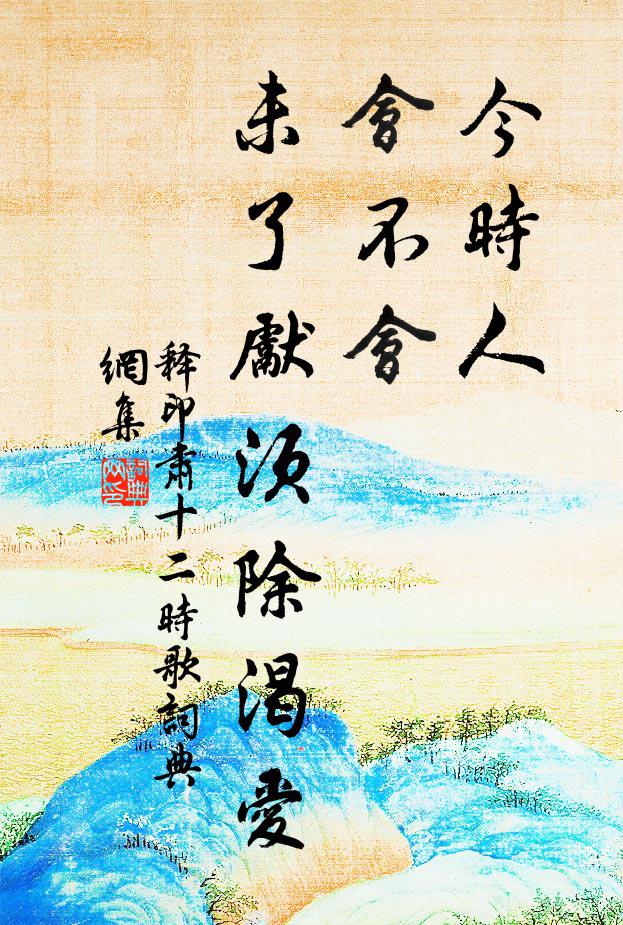 今時人
會不會
未了獻須除渴愛
释印肅十二時歌詞典
網集
詞典
网印